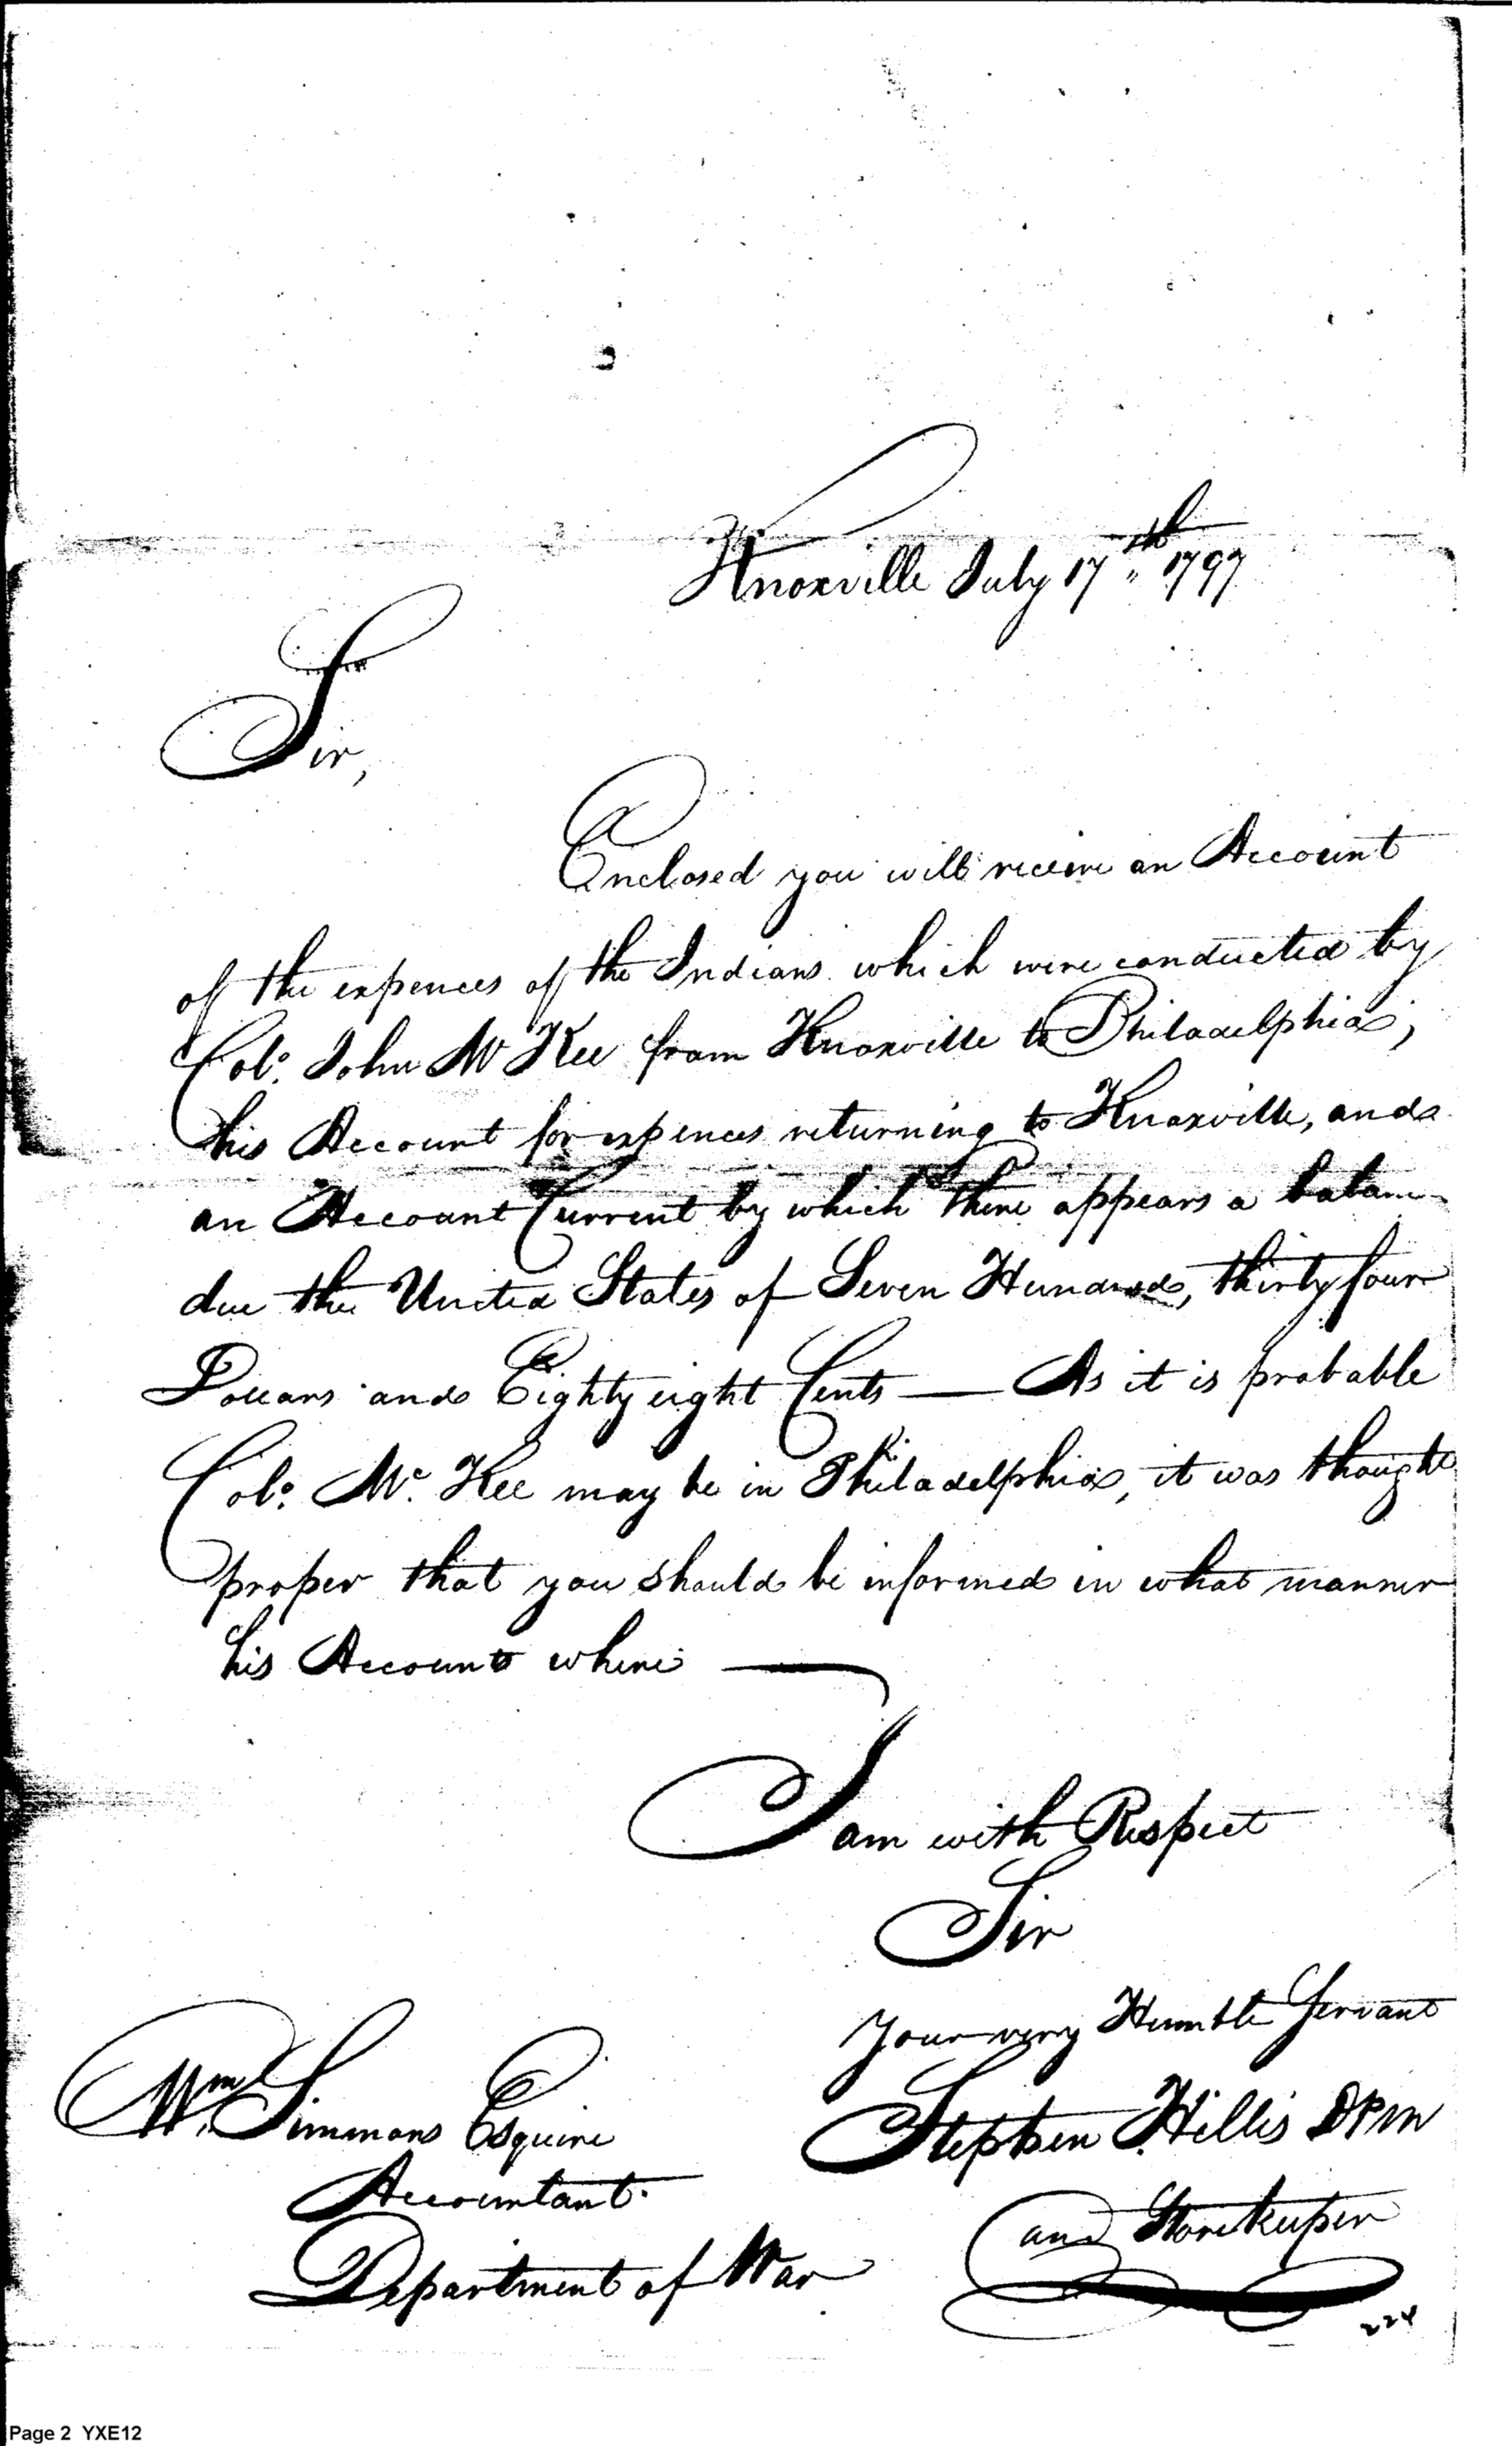 Knoxville July 17th 1797
Sir,
Enclosed you will receive an Account
of the expences of the Indians which were conducted by
Colo. John McKee from Knoxville to Philadelphia,
his Account for expences returning to Knoxville, and
an Account Current by which there appears a balance
due the United States of Seven Hundred, thirty four
Dollars and Eighty eight Cents — As it is probable
Colo. Mc. Kee may be in Philadelphia, it was thought
proper that you should be informed in what manner
his Account where —
I am with Respect
Sir
Your very Humble Servant
Stephen Hillis DPM
and Storekeeper
Wm. Simmons Esquire
Accountant
Department of War
224
Page 2 YXE12